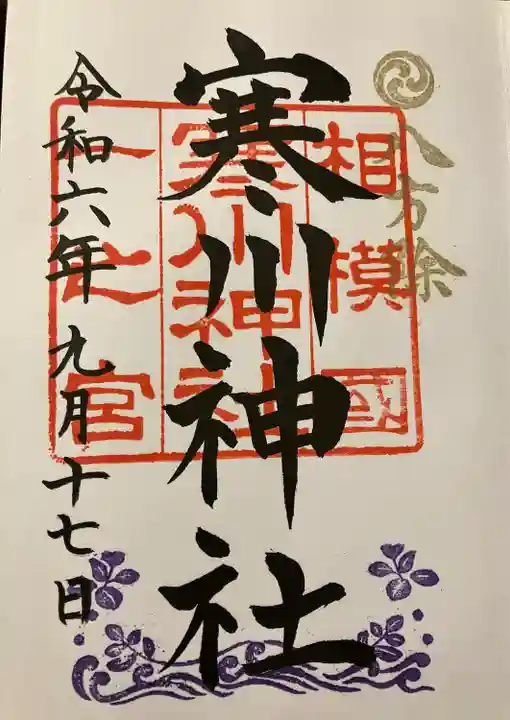 八方除
相模國
寒川神社
一之宮
寒川神社
令和六年九月十七日